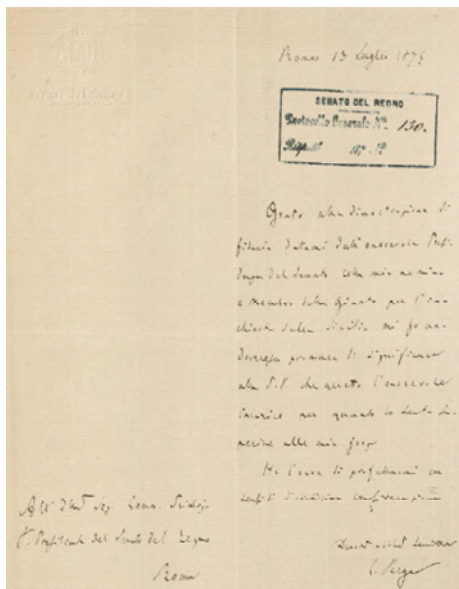 Roma 13 Luglio 1875
SENATO DEL REGNO
Protocollo Generale N.° 130.
187 N.°
Grato alla dimostrazione di
fiducia datami dall'onorevole Presi
denza del Senato colla mia nomina
a membro della Giunta per l'in-
chiesta sulla Sicilia mi fo un
doveroso premura di significare
alla S.V. che accetto l'onorevole
incarico per quanto lo senta su-
periore alle mie forze
Ho l'onore di professarmi con
sensi di distintissima considerazione
All' Sig. Comm.
V. Presidente del Senato del Regno
Roma
C. Verga